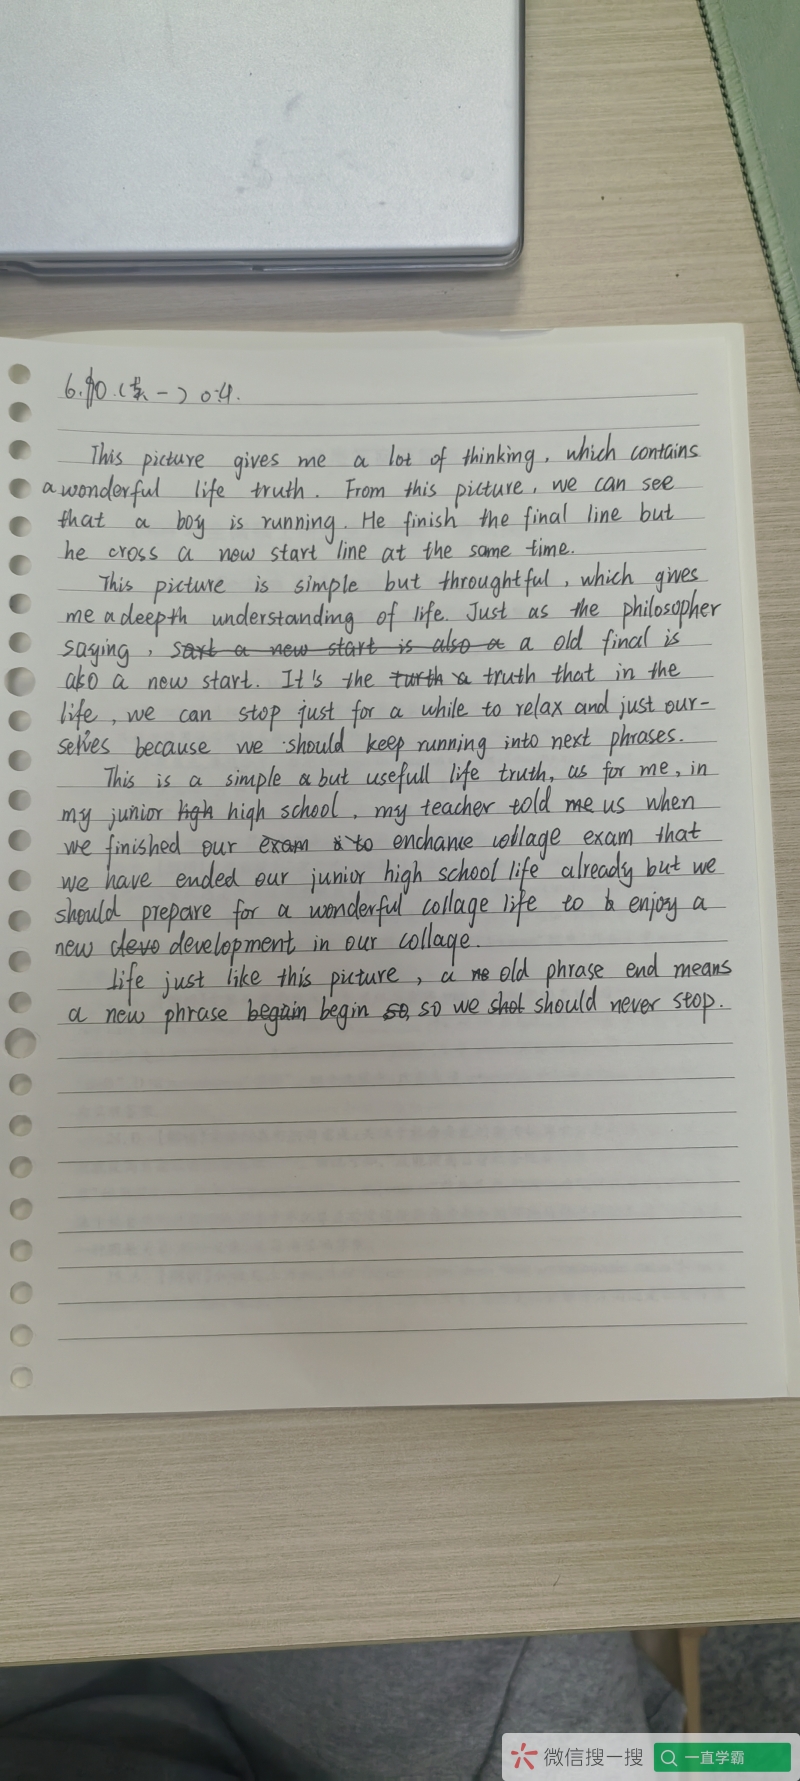 6.10.(英一) 04.
This picture gives me a lot of thinking, which contains
a wonderful life truth. From this picture, we can see
that a boy is running. He finish the final line but
he cross a new start line at the same time.
This picture is simple but throughtful, which gives
me a deepth understanding of life. Just as the philosopher
saying, sart a new start is also a a old final is
also a new start. It's the turth a truth that in the
life, we can stop just for a while to relax and just our-
selves because we should keep running into next phrases.
This is a simple a but usefull life truth, as for me, in
my junior high high school, my teacher told me us when
we finished our exam is to enchance collage exam that
we have ended our junior high school life already but we
should prepare for a wonderful collage life to enjoy a
new devo development in our collage.
Life just like this picture, a ne old phrase end means
a new phrase begain begin so, so we shol should never stop.
微信搜一搜
一直学霸